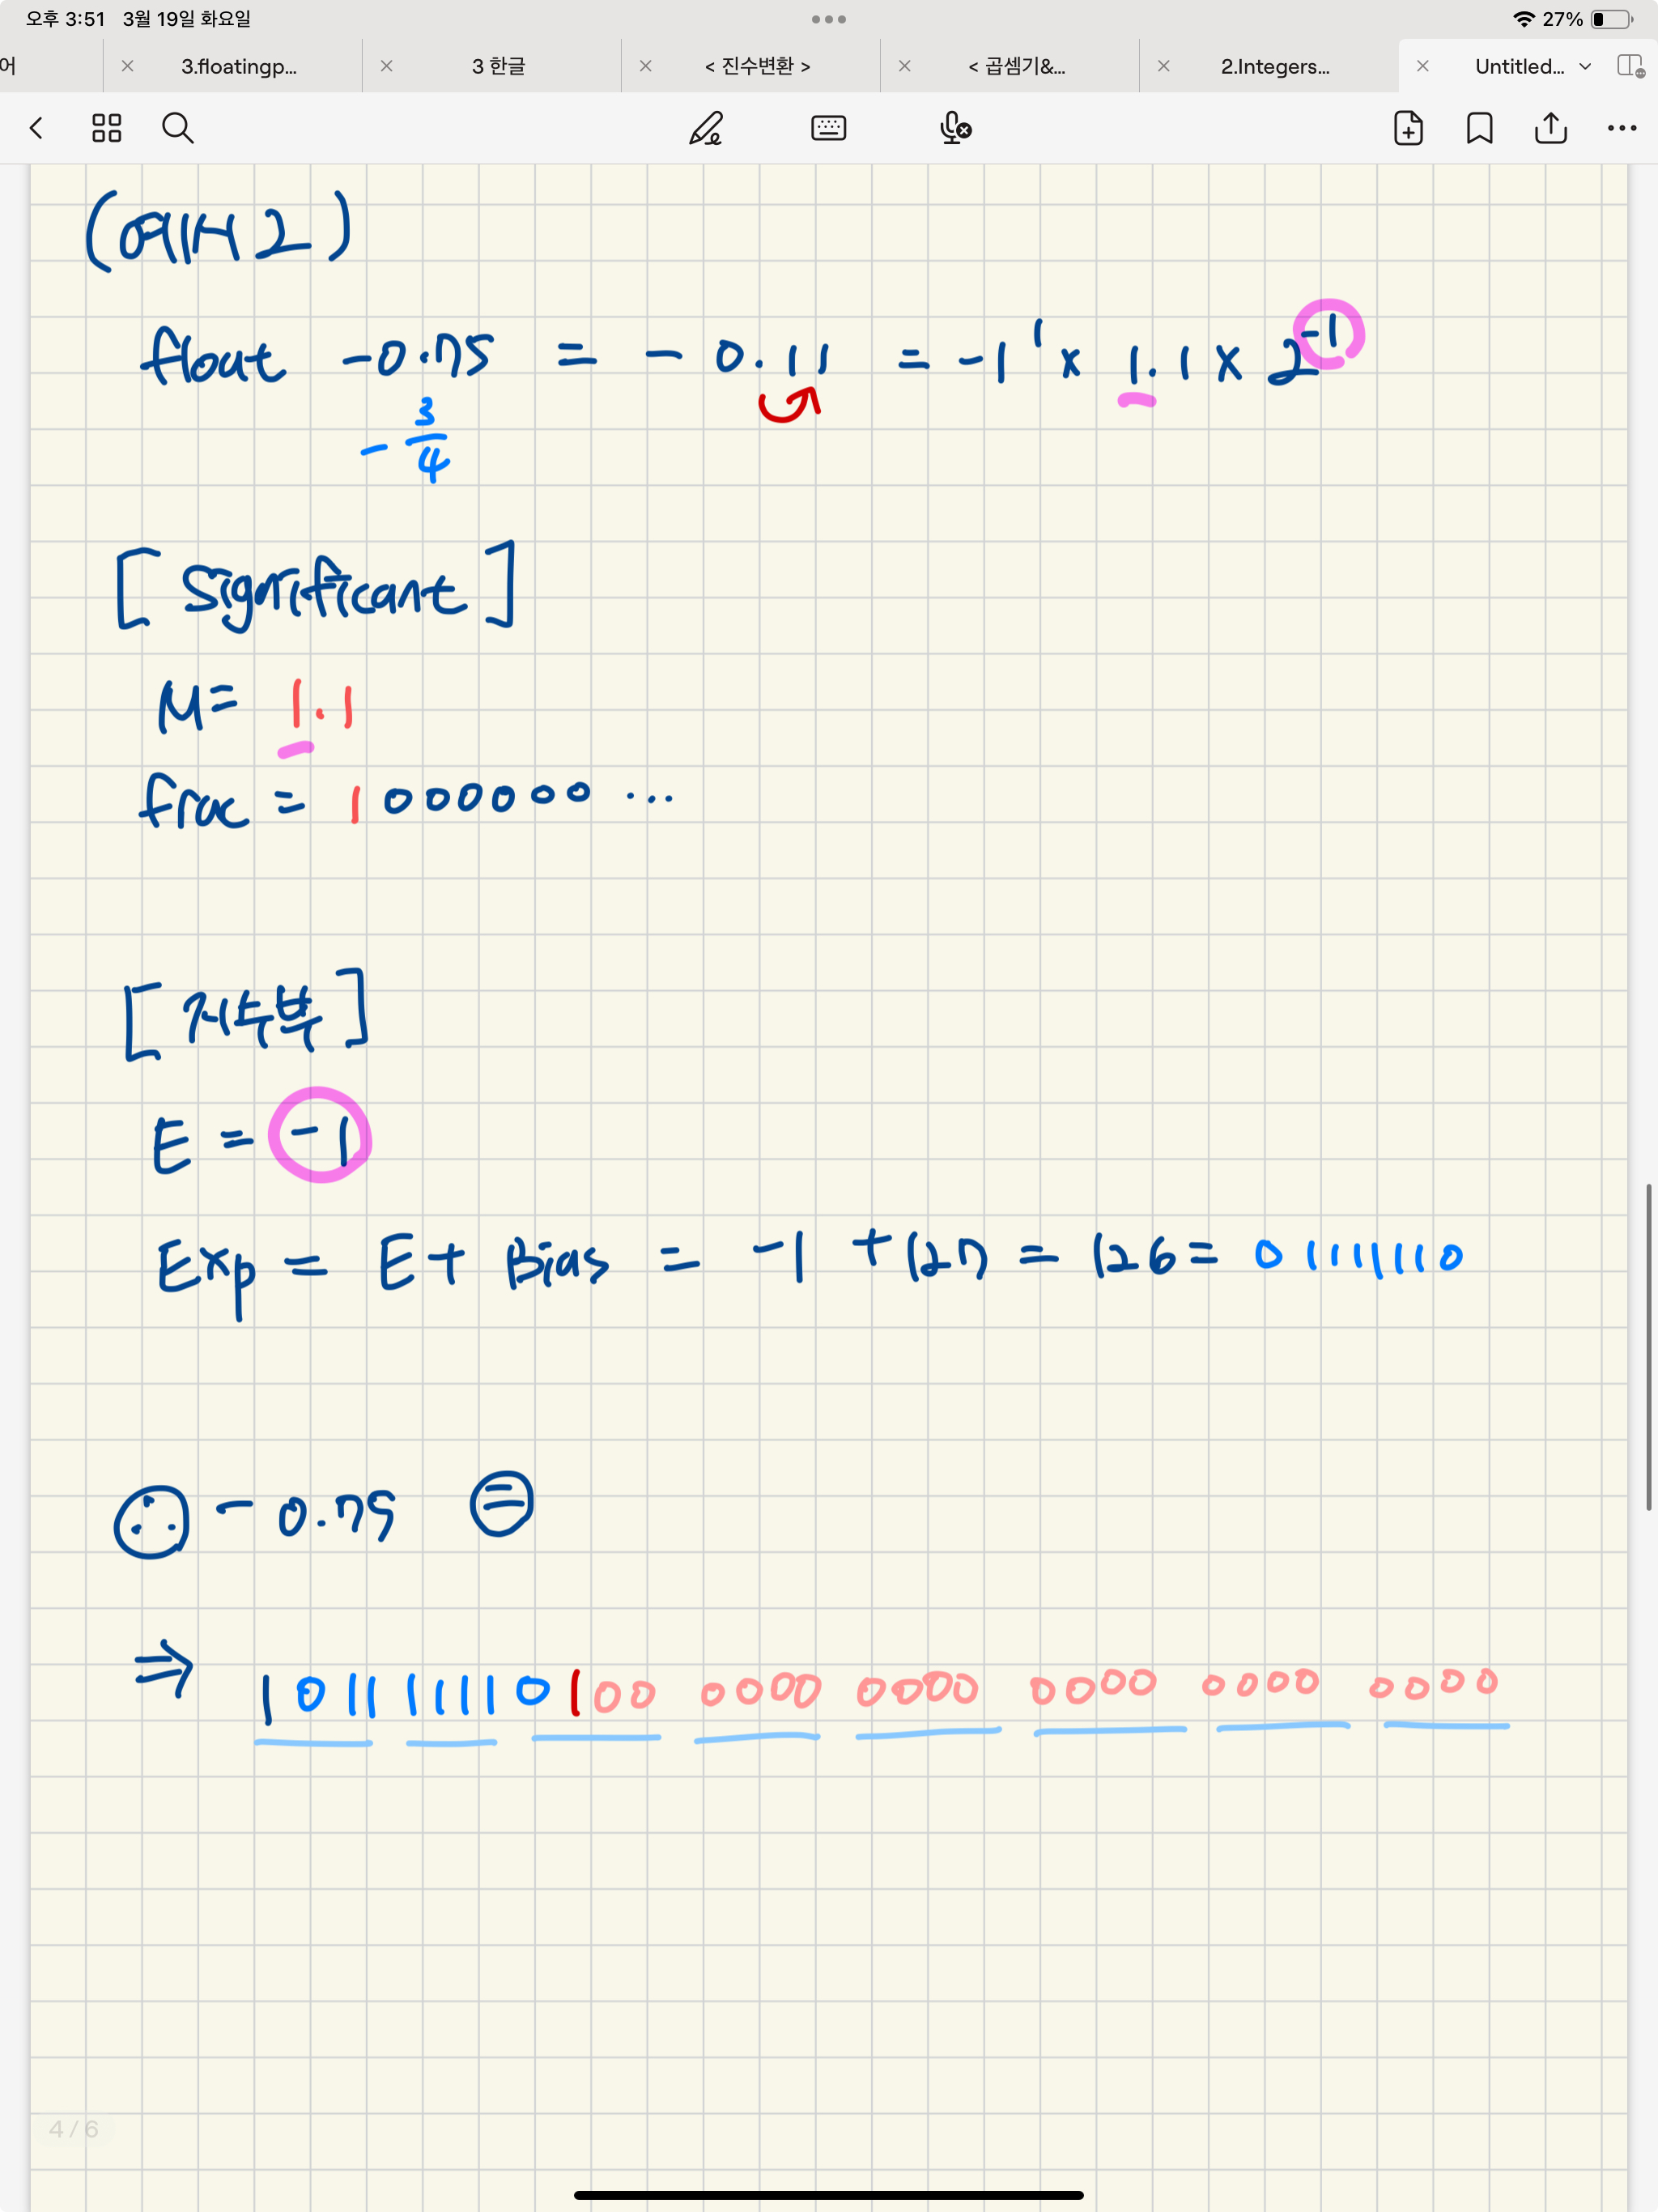 오후 3:51 3월 19일 화요일 27%
어 3.floatingp... 3 한글 < 진수변환 > < 곱셈기&... 2.Integers... Untitled...
(예제 2)
float -0.75 = - 0.11 = -1¹ × 1.1 × 2⁻¹
- 3/4
[ Significant ]
M = 1.1
frac = 1 000000 ...
[ 지수부 ]
E = -1
Exp = E + Bias = -1 + 127 = 126 = 01111110
∴ -0.75 는
⇒ 1011 1111 0100 0000 0000 0000 0000 0000
4 / 6